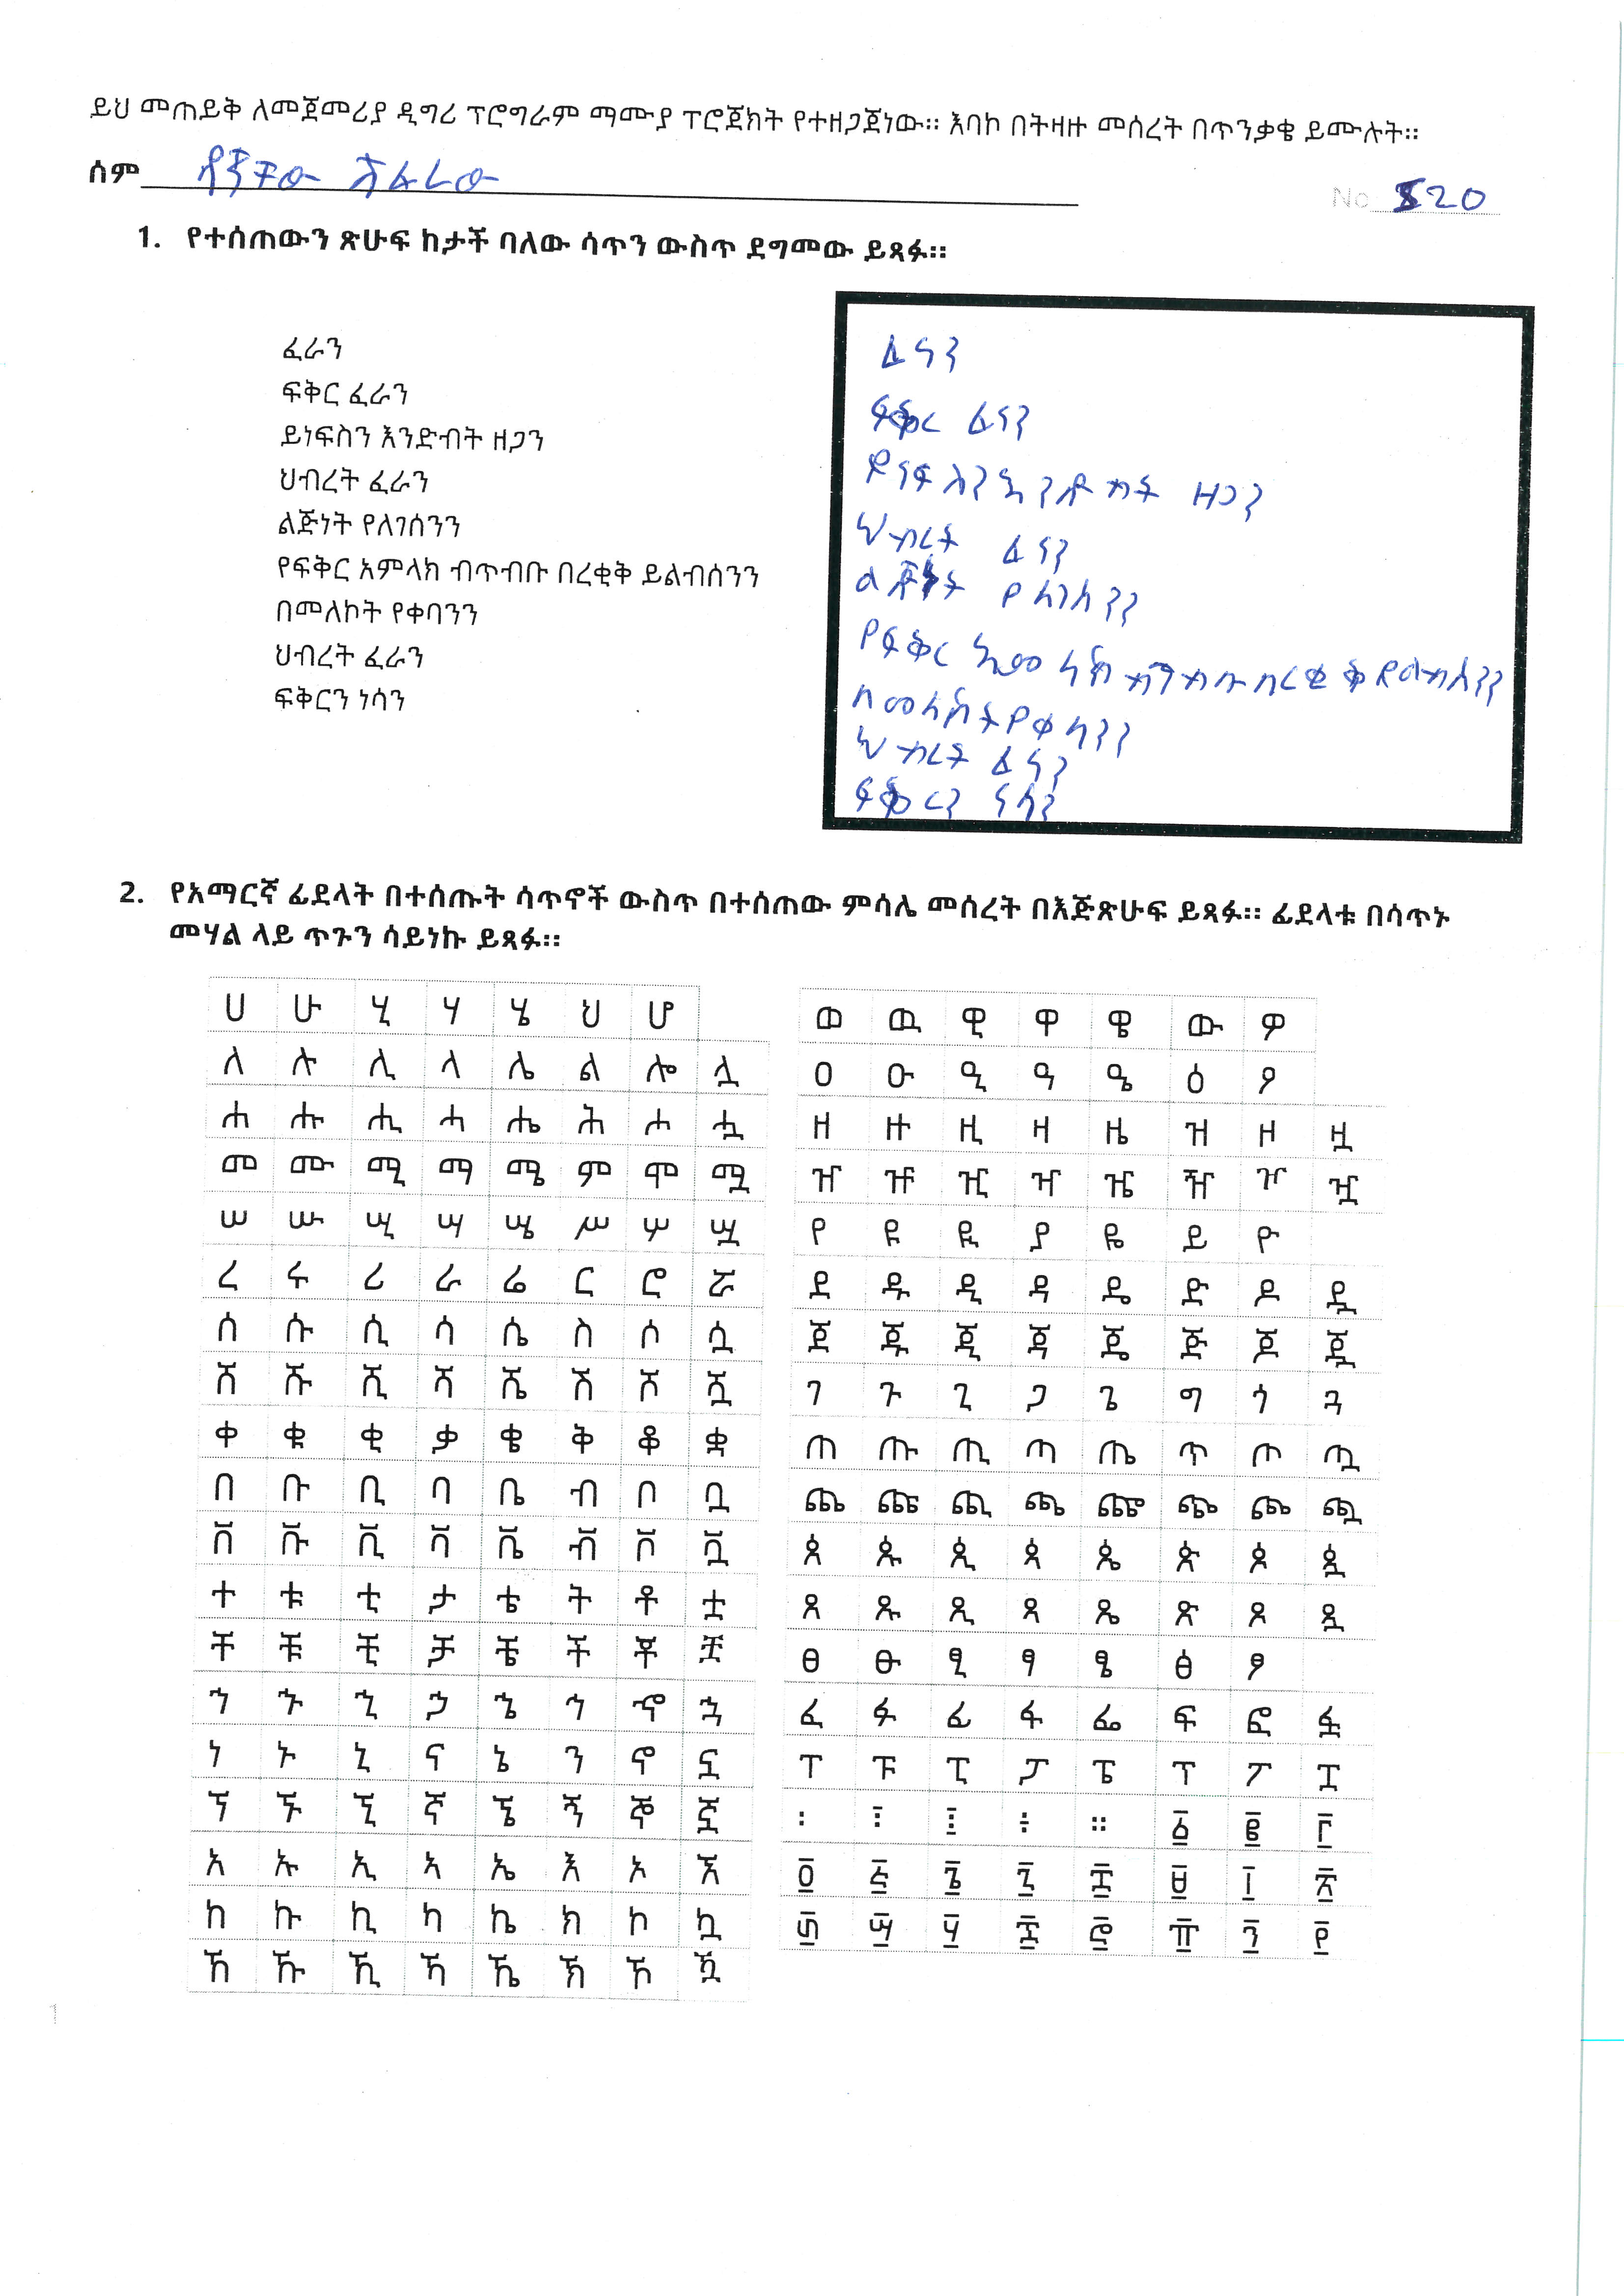 ይህ መጠይቅ ለመጀመሪያ ዲግሪ ፕሮግራም ማሙያ ፕሮጀክት የተዘጋጀነው። እባኮ በትዛዙ መሰረት በጥንቃቄ ይሙሉት።
ስም
No 520
1. የተሰጠውን ጽሁፍ ከታች ባለው ሳጥን ውስጥ ደግመው ይጻፉ።
ፈራን
ፍቅር ፈራን
ይነፍስን እንድብት ዘጋን
ህብረት ፈራን
ልጅነት የለገሰንን
የፍቅር አምላክ ብጥብቡ በረቂቅ ይልብሰንን
በመለኮት የቀባንን
ህብረት ፈራን
ፍቅርን ነሳን
ፈራን
ፍቅር ፈራን
ይነፍስን እንድብት ዘጋን
ህብረት ፈራን
ልጅነት የለገሰንን
የፍቅር አምላክ ብጥብቡ በረቂቅ ይልብሰንን
በመለኮት የቀባንን
ህብረት ፈራን
ፍቅርን ነሳን
2. የአማርኛ ፊደላት በተሰጡት ሳጥኖች ውስጥ በተሰጠው ምሳሌ መሰረት በእጅጽሁፍ ይጻፉ። ፊደላቱ በሳጥኑ
መሃል ላይ ጥጉን ሳይነኩ ይጻፉ።
ሀ ሁ ሂ ሃ ሄ ህ ሆ
ለ ሉ ሊ ላ ሌ ል ሎ ሏ
ሐ ሑ ሒ ሓ ሔ ሕ ሖ ሗ
መ ሙ ሚ ማ ሜ ም ሞ ሟ
ሠ ሡ ሢ ሣ ሤ ሥ ሦ ሧ
ረ ሩ ሪ ራ ሬ ር ሮ ሯ
ሰ ሱ ሲ ሳ ሴ ስ ሶ ሷ
ሸ ሹ ሺ ሻ ሼ ሽ ሾ ሿ
ቀ ቁ ቂ ቃ ቄ ቅ ቆ ቋ
በ ቡ ቢ ባ ቤ ብ ቦ ቧ
ቨ ቩ ቪ ቫ ቬ ቭ ቮ ቯ
ተ ቱ ቲ ታ ቴ ት ቶ ቷ
ቸ ቹ ቺ ቻ ቼ ች ቾ ቿ
ኀ ኁ ኂ ኃ ኄ ኅ ኆ ኋ
ነ ኑ ኒ ና ኔ ን ኖ ኗ
ኘ ኙ ኚ ኛ ኜ ኝ ኞ ኟ
አ ኡ ኢ ኣ ኤ እ ኦ ኧ
ከ ኩ ኪ ካ ኬ ክ ኮ ኳ
ኸ ኹ ኺ ኻ ኼ ኽ ኾ ዃ
ወ ዉ ዊ ዋ ዌ ው ዎ
ዐ ዑ ዒ ዓ ዔ ዕ ዖ
ዘ ዙ ዚ ዛ ዜ ዝ ዞ ዟ
ዠ ዡ ዢ ዣ ዤ ዥ ዦ ዧ
የ ዩ ዪ ያ ዬ ይ ዮ
ደ ዱ ዲ ዳ ዴ ድ ዶ ዷ
ጀ ጁ ጂ ጃ ጄ ጅ ጆ ጇ
ገ ጉ ጊ ጋ ጌ ግ ጎ ጓ
ጠ ጡ ጢ ጣ ጤ ጥ ጦ ጧ
ጨ ጩ ጪ ጫ ጬ ጭ ጮ ጯ
ጰ ጱ ጲ ጳ ጴ ጵ ጶ ጷ
ጸ ጹ ጺ ጻ ጼ ጽ ጾ ጿ
ፀ ፁ ፂ ፃ ፄ ፅ ፆ
ፈ ፉ ፊ ፋ ፌ ፍ ፎ ፏ
ፐ ፑ ፒ ፓ ፔ ፕ ፖ ፗ
፡ ፣ ፤ ፥ ። ፩ ፪ ፫
፬ ፭ ፮ ፯ ፰ ፱ ፲ ፳
፴ ፵ ፶ ፷ ፸ ፹ ፺ ፻
1